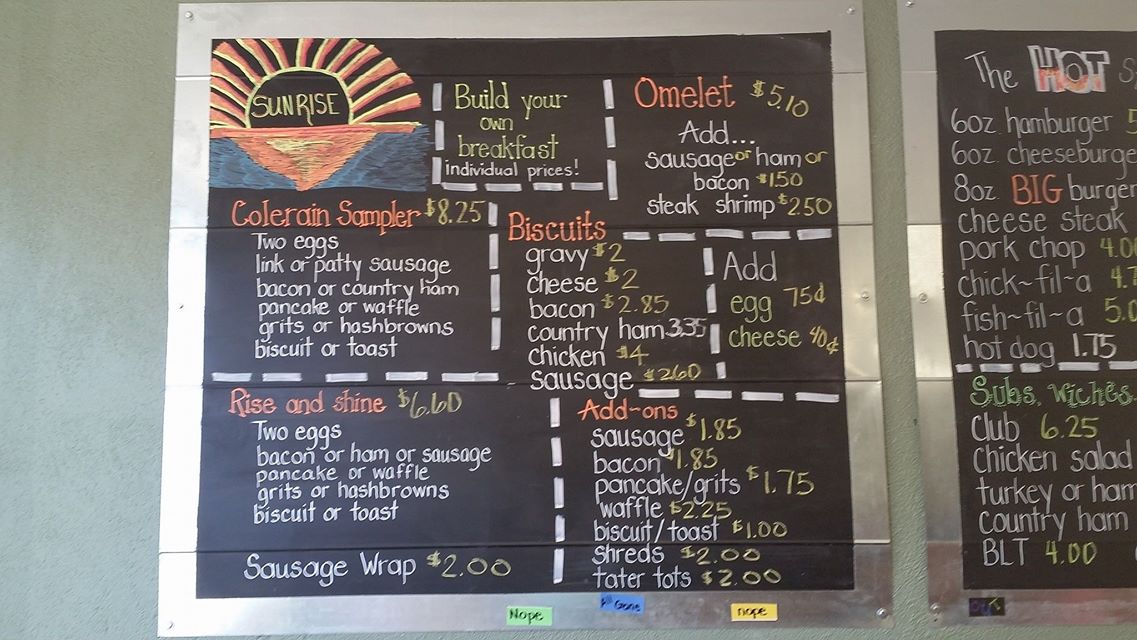 SUNRISE
Build your
own
breakfast
Individual prices!
Omelet $5.10
Add...
sausage or ham or
bacon $1.50
steak shrimp $2.50
Colerain Sampler $8.25
Two eggs
link or patty sausage
bacon or country ham
pancake or waffle
grits or hashbrowns
biscuit or toast
Biscuits
gravy $2
cheese $2
bacon $2.85
country ham 3.35
chicken $4
sausage $2.60
Add
egg 75¢
cheese 40¢
Rise and shine $6.60
Two eggs
bacon or ham or sausage
pancake or waffle
grits or hashbrowns
biscuit or toast
Sausage Wrap $2.00
Add-ons
sausage $1.85
bacon $1.85
pancake/grits $1.75
waffle $2.25
biscuit/toast $1.00
shreds $2.00
tater tots $2.00
Nope
All Gone
nope
The HOT
6oz. hamburger
6oz. cheeseburge
8oz BIG burger
cheese steak
pork chop 4.0
chick~fil~a 4.7
fish~fil~a 5.0
hot dog 1.75
Subs, wiches
Club 6.25
Chicken salad
turkey or ham
Country ham
BLT 4.00